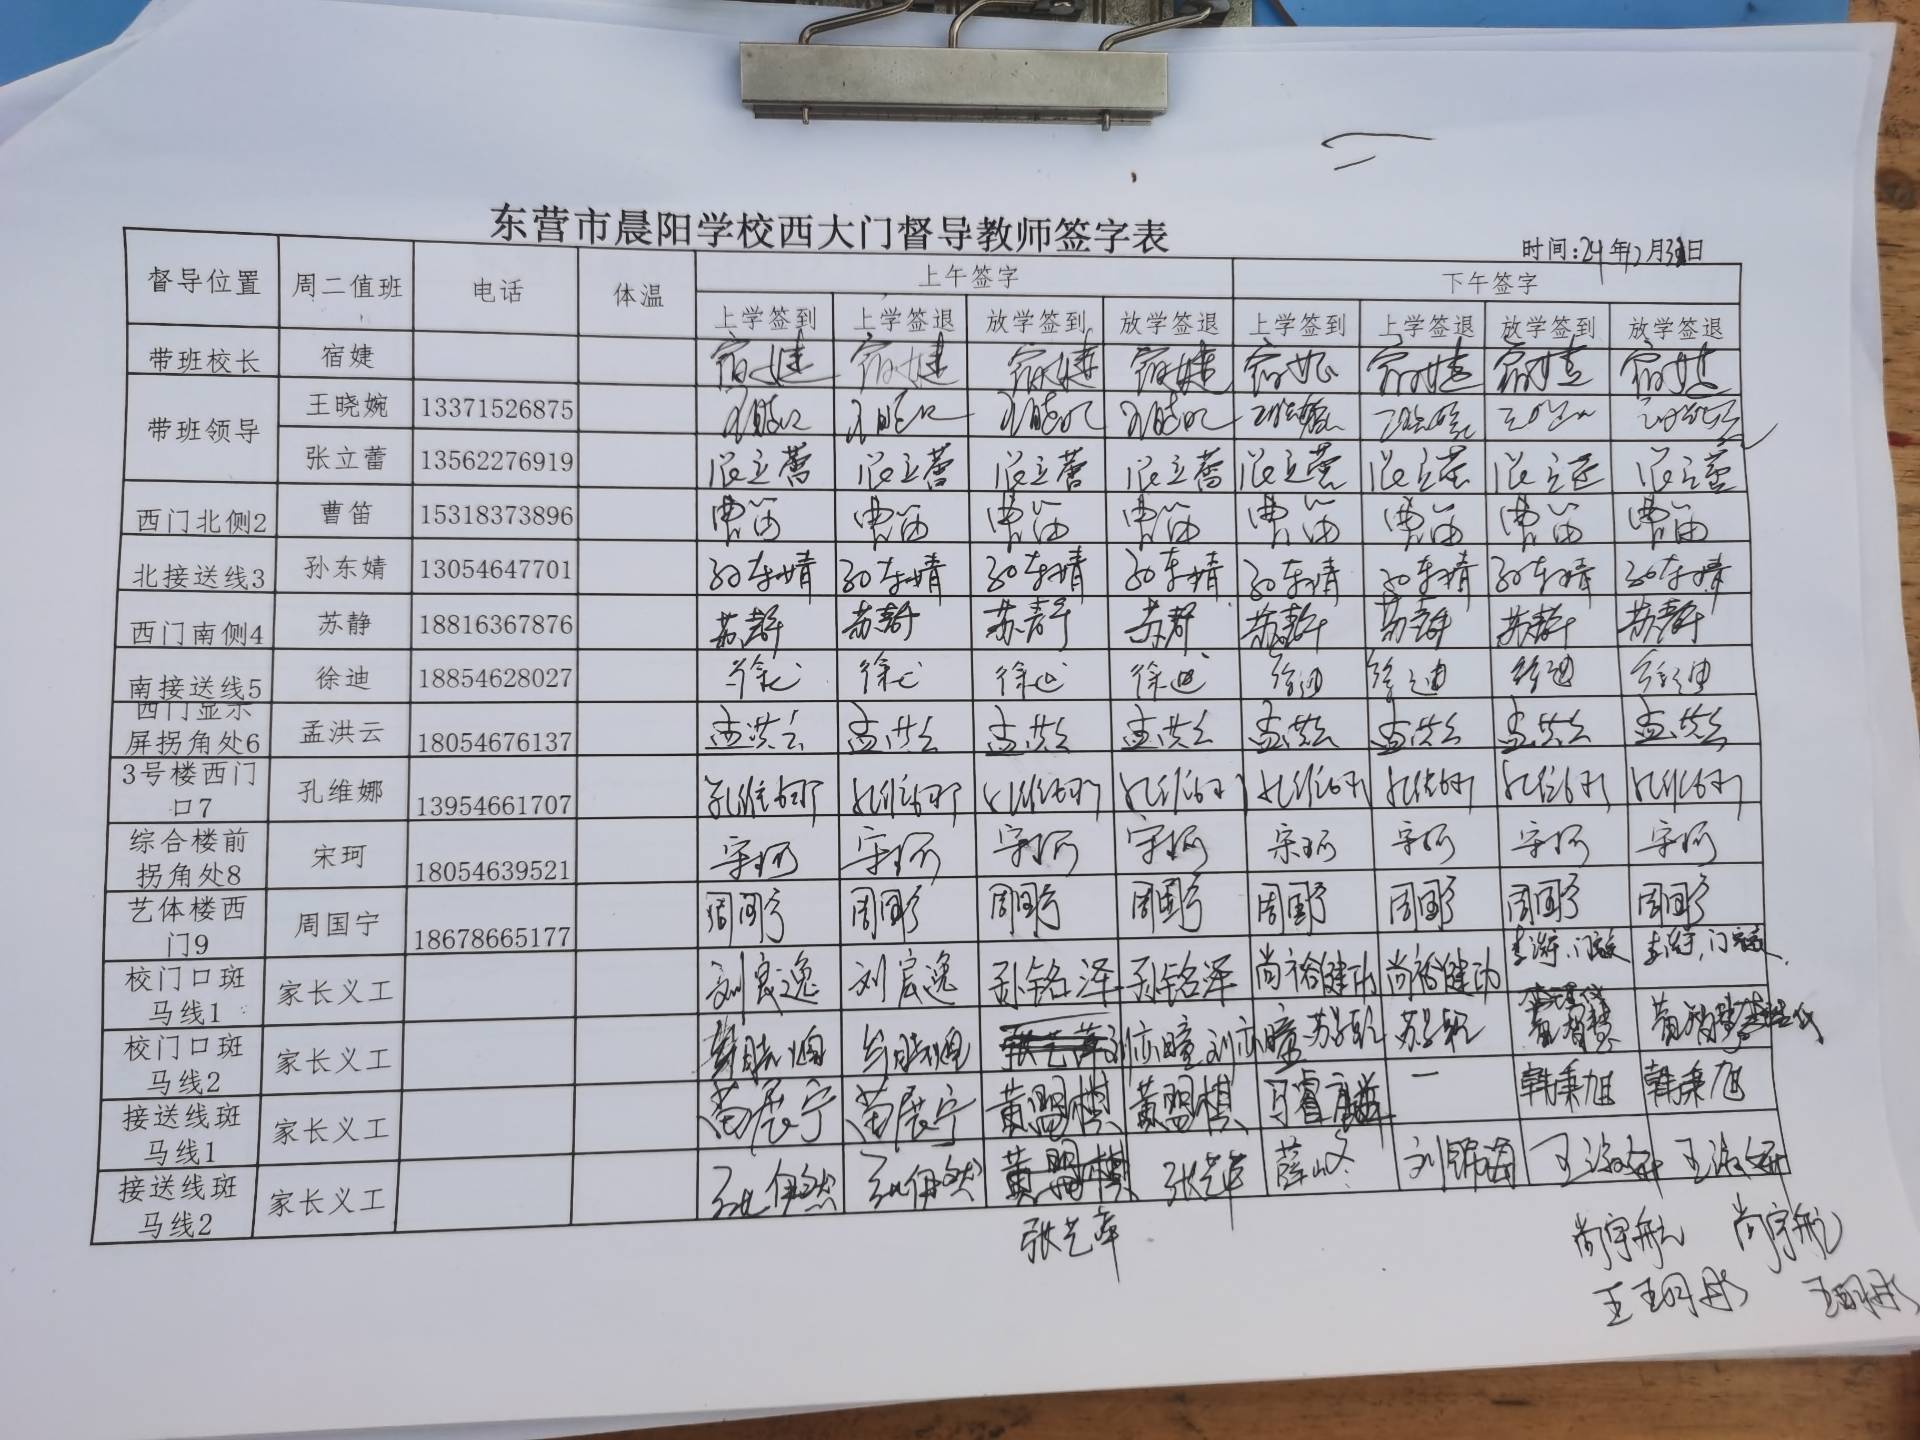 东营市晨阳学校西大门督导教师签字表
时间:24年12月31日
督导位置 周二值班 电话 体温 上午签字 下午签字
上学签到 上学签退 放学签到 放学签退 上学签到 上学签退 放学签到 放学签退
带班校长 宿婕 宿婕 宿婕 宿婕 宿婕 宿婕 宿婕 宿婕 宿婕
带班领导
王晓婉 13371526875
张立蕾 13562276919 张立蕾 张立蕾 张立蕾 张立蕾 张立蕾 张立蕾 张立蕾 张立蕾
西门北侧2 曹笛 15318373896 曹笛 曹笛 曹笛 曹笛 曹笛 曹笛 曹笛 曹笛
北接送线3 孙东婧 13054647701 孙东婧 孙东婧 孙东婧 孙东婧 孙东婧 孙东婧 孙东婧 孙东婧
西门南侧4 苏静 18816367876 苏静 苏静 苏静 苏静 苏静 苏静 苏静 苏静
南接送线5 徐迪 18854628027 徐迪 徐迪 徐迪 徐迪 徐迪 徐迪 徐迪 徐迪
西门显示
屏拐角处6 孟洪云 18054676137 孟洪云 孟洪云 孟洪云 孟洪云 孟洪云 孟洪云 孟洪云 孟洪云
3号楼西门
口7 孔维娜 13954661707 孔维娜 孔维娜 孔维娜 孔维娜 孔维娜 孔维娜 孔维娜 孔维娜
综合楼前
拐角处8 宋珂 18054639521 宋珂 宋珂 宋珂 宋珂 宋珂 宋珂 宋珂 宋珂
艺体楼西
门9 周国宁 18678665177 周国宁 周国宁 周国宁 周国宁 周国宁 周国宁 周国宁 周国宁
校门口斑
马线1 家长义工 刘宸逸 刘宸逸 孙铭泽 孙铭泽 尚裕健功 尚裕健功
校门口斑
马线2 家长义工 刘亦瞳 刘亦瞳
接送线斑
马线1 家长义工 苗展宁 苗展宁 黄盟棋 黄盟棋 一 韩秉旭 韩秉旭
接送线斑
马线2 家长义工 黄盟棋
尚宇航 尚宇航